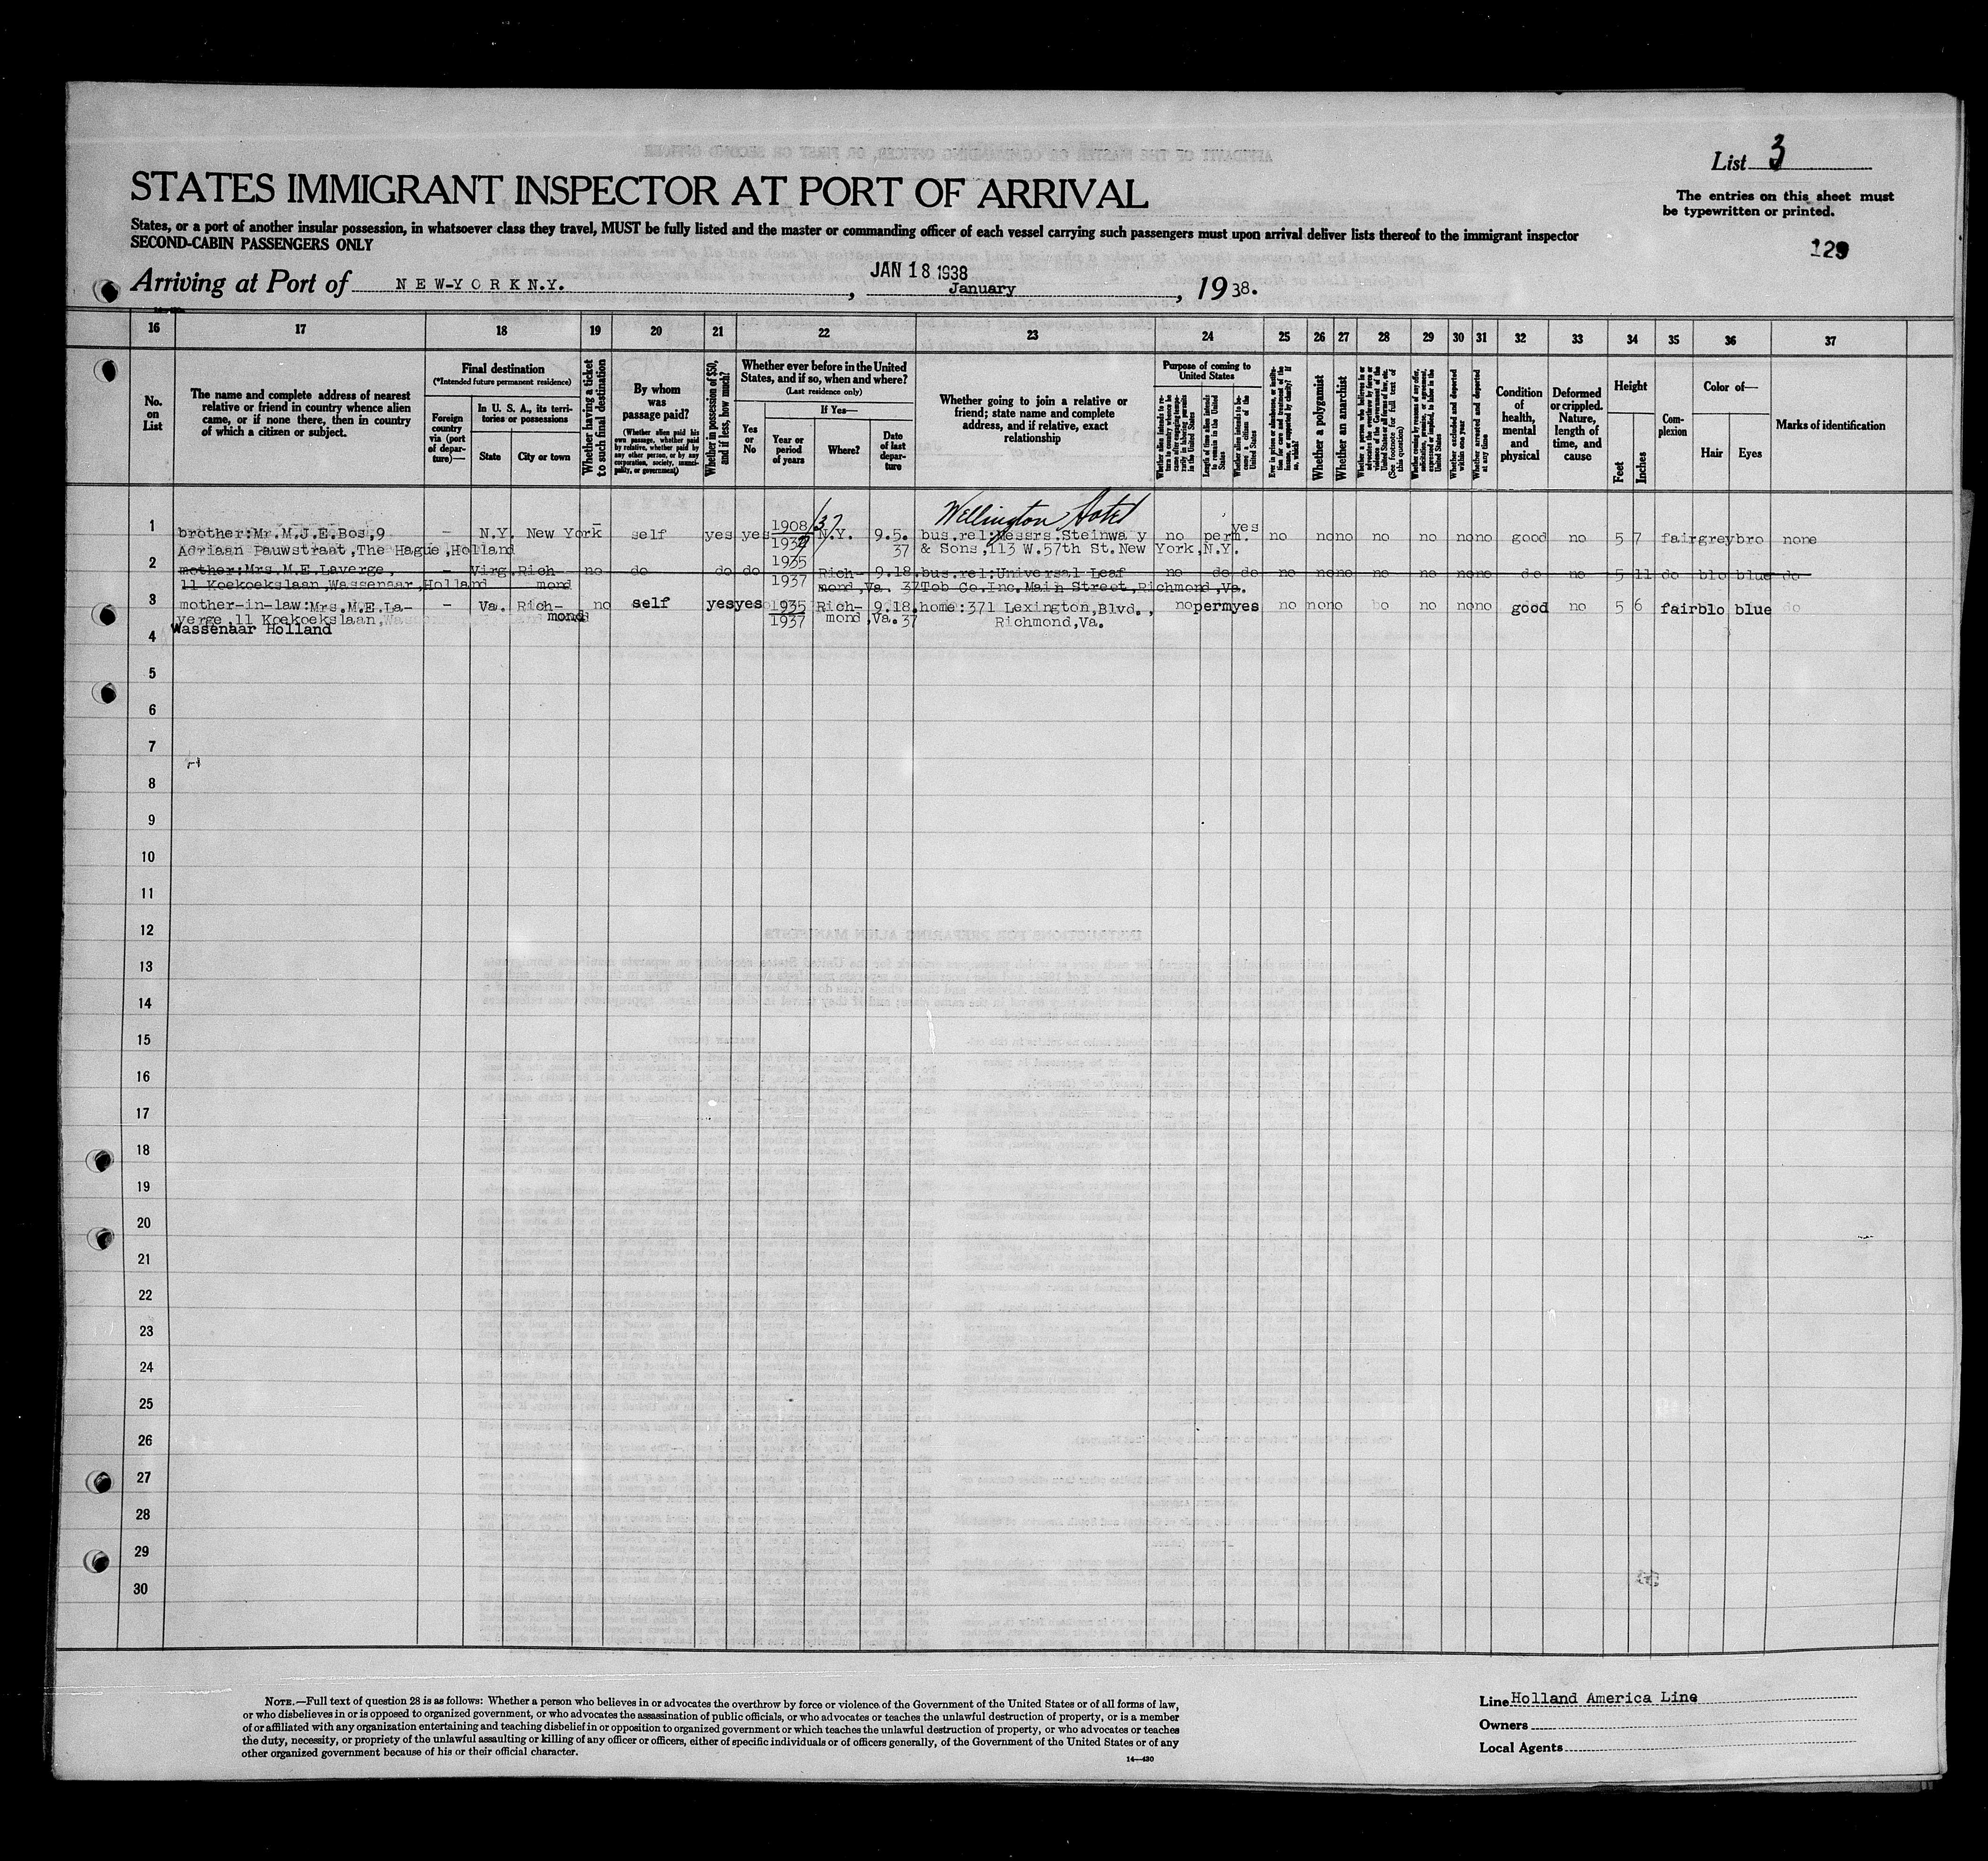 List 3
STATES IMMIGRANT INSPECTOR AT PORT OF ARRIVAL
The entries on this sheet must
be typewritten or printed.
States, or a port of another insular possession, in whatsoever class they travel, MUST be fully listed and the master or commanding officer of each vessel carrying such passengers must upon arrival deliver lists thereof to the immigrant inspector
SECOND-CABIN PASSENGERS ONLY
129
JAN 18 1938
Arriving at Port of NEW-YORK N.Y. , January , 1938.
16 17 18 19 20 21 22 23 24 25 26 27 28 29 30 31 32 33 34 35 36 37
No. on List
The name and complete address of nearest
relative or friend in country whence alien
came, or if none there, then in country
of which a citizen or subject.
Final destination
(*Intended future permanent residence)
Foreign country via (port of departure)—
In U. S. A., its territories or possessions
State
City or town
Whether having a ticket to such final destination
By whom was passage paid?
(Whether alien paid his own passage, whether paid by relative, whether paid by any other person, or by any corporation, society, municipality, or government)
Whether in possession of $50, and if less, how much?
Whether ever before in the United States, and if so, when and where?
(Last residence only)
Yes or No
If Yes—
Year or period of years
Where?
Date of last departure
Whether going to join a relative or
friend; state name and complete
address, and if relative, exact
relationship
Purpose of coming to United States
Whether alien intends to return to country whence he came after engaging temporarily in laboring pursuits in the United States
Length of time alien intends to remain in the United States
Whether alien intends to become a citizen of the United States
Whether a polygamist
Whether an anarchist
Whether excluded and deported within one year
Whether arrested and deported at any time
Condition of health, mental and physical
Deformed or crippled. Nature, length of time, and cause
Height
Feet
Inches
Complexion
Color of—
Hair
Eyes
Marks of identification
Wellington Hotel
1 brother:Mr.M.J.E.Bos,9 – N.Y. New York – self yes yes 1908/37 N.Y. 9.5. bus.rel:Messrs.Steinway no perm. yes no no no no no no no good no 5 7 fair grey bro none
Adriaan Pauwstraat,The Hague,Holland 1937 37 & Sons,113 W.57th St.New York,N.Y.
2 mother:Mrs.M.E.Laverge, – Virg. Rich- no do do do 1935 Rich- 9.18. bus.rel:Universal Leaf no do do no no no no no no no do no 5 11 do blo blue do
11 Koekoekslaan,Wassenaar,Holland mond 1937 mond,Va. 37 Tob Co,Inc.Main Street,Richmond,Va.
3 mother-in-law:Mrs.M.E.La- – Va. Rich- no self yes yes 1935 Rich- 9.18. home:371 Lexington,Blvd., no perm yes no no no no no no no good no 5 6 fair blo blue do
verge,11 Koekoekslaan, mond 1937 mond,Va. 37 Richmond,Va.
Wassenaar Holland
4
5
6
7
8
9
10
11
12
13
14
15
16
17
18
19
20
21
22
23
24
25
26
27
28
29
30
NOTE.—Full text of question 28 is as follows: Whether a person who believes in or advocates the overthrow by force or violence of the Government of the United States or of all forms of law,
or who disbelieves in or is opposed to organized government, or who advocates the assassination of public officials, or who advocates or teaches the unlawful destruction of property, or is a member
of or affiliated with any organization entertaining and teaching disbelief in or opposition to organized government or which teaches the unlawful destruction of property, or who advocates or teaches
the duty, necessity, or propriety of the unlawful assaulting or killing of any officer or officers, either of specific individuals or of officers generally, of the Government of the United States or of any
other organized government because of his or their official character.
14—430
Line Holland America Line
Owners
Local Agents